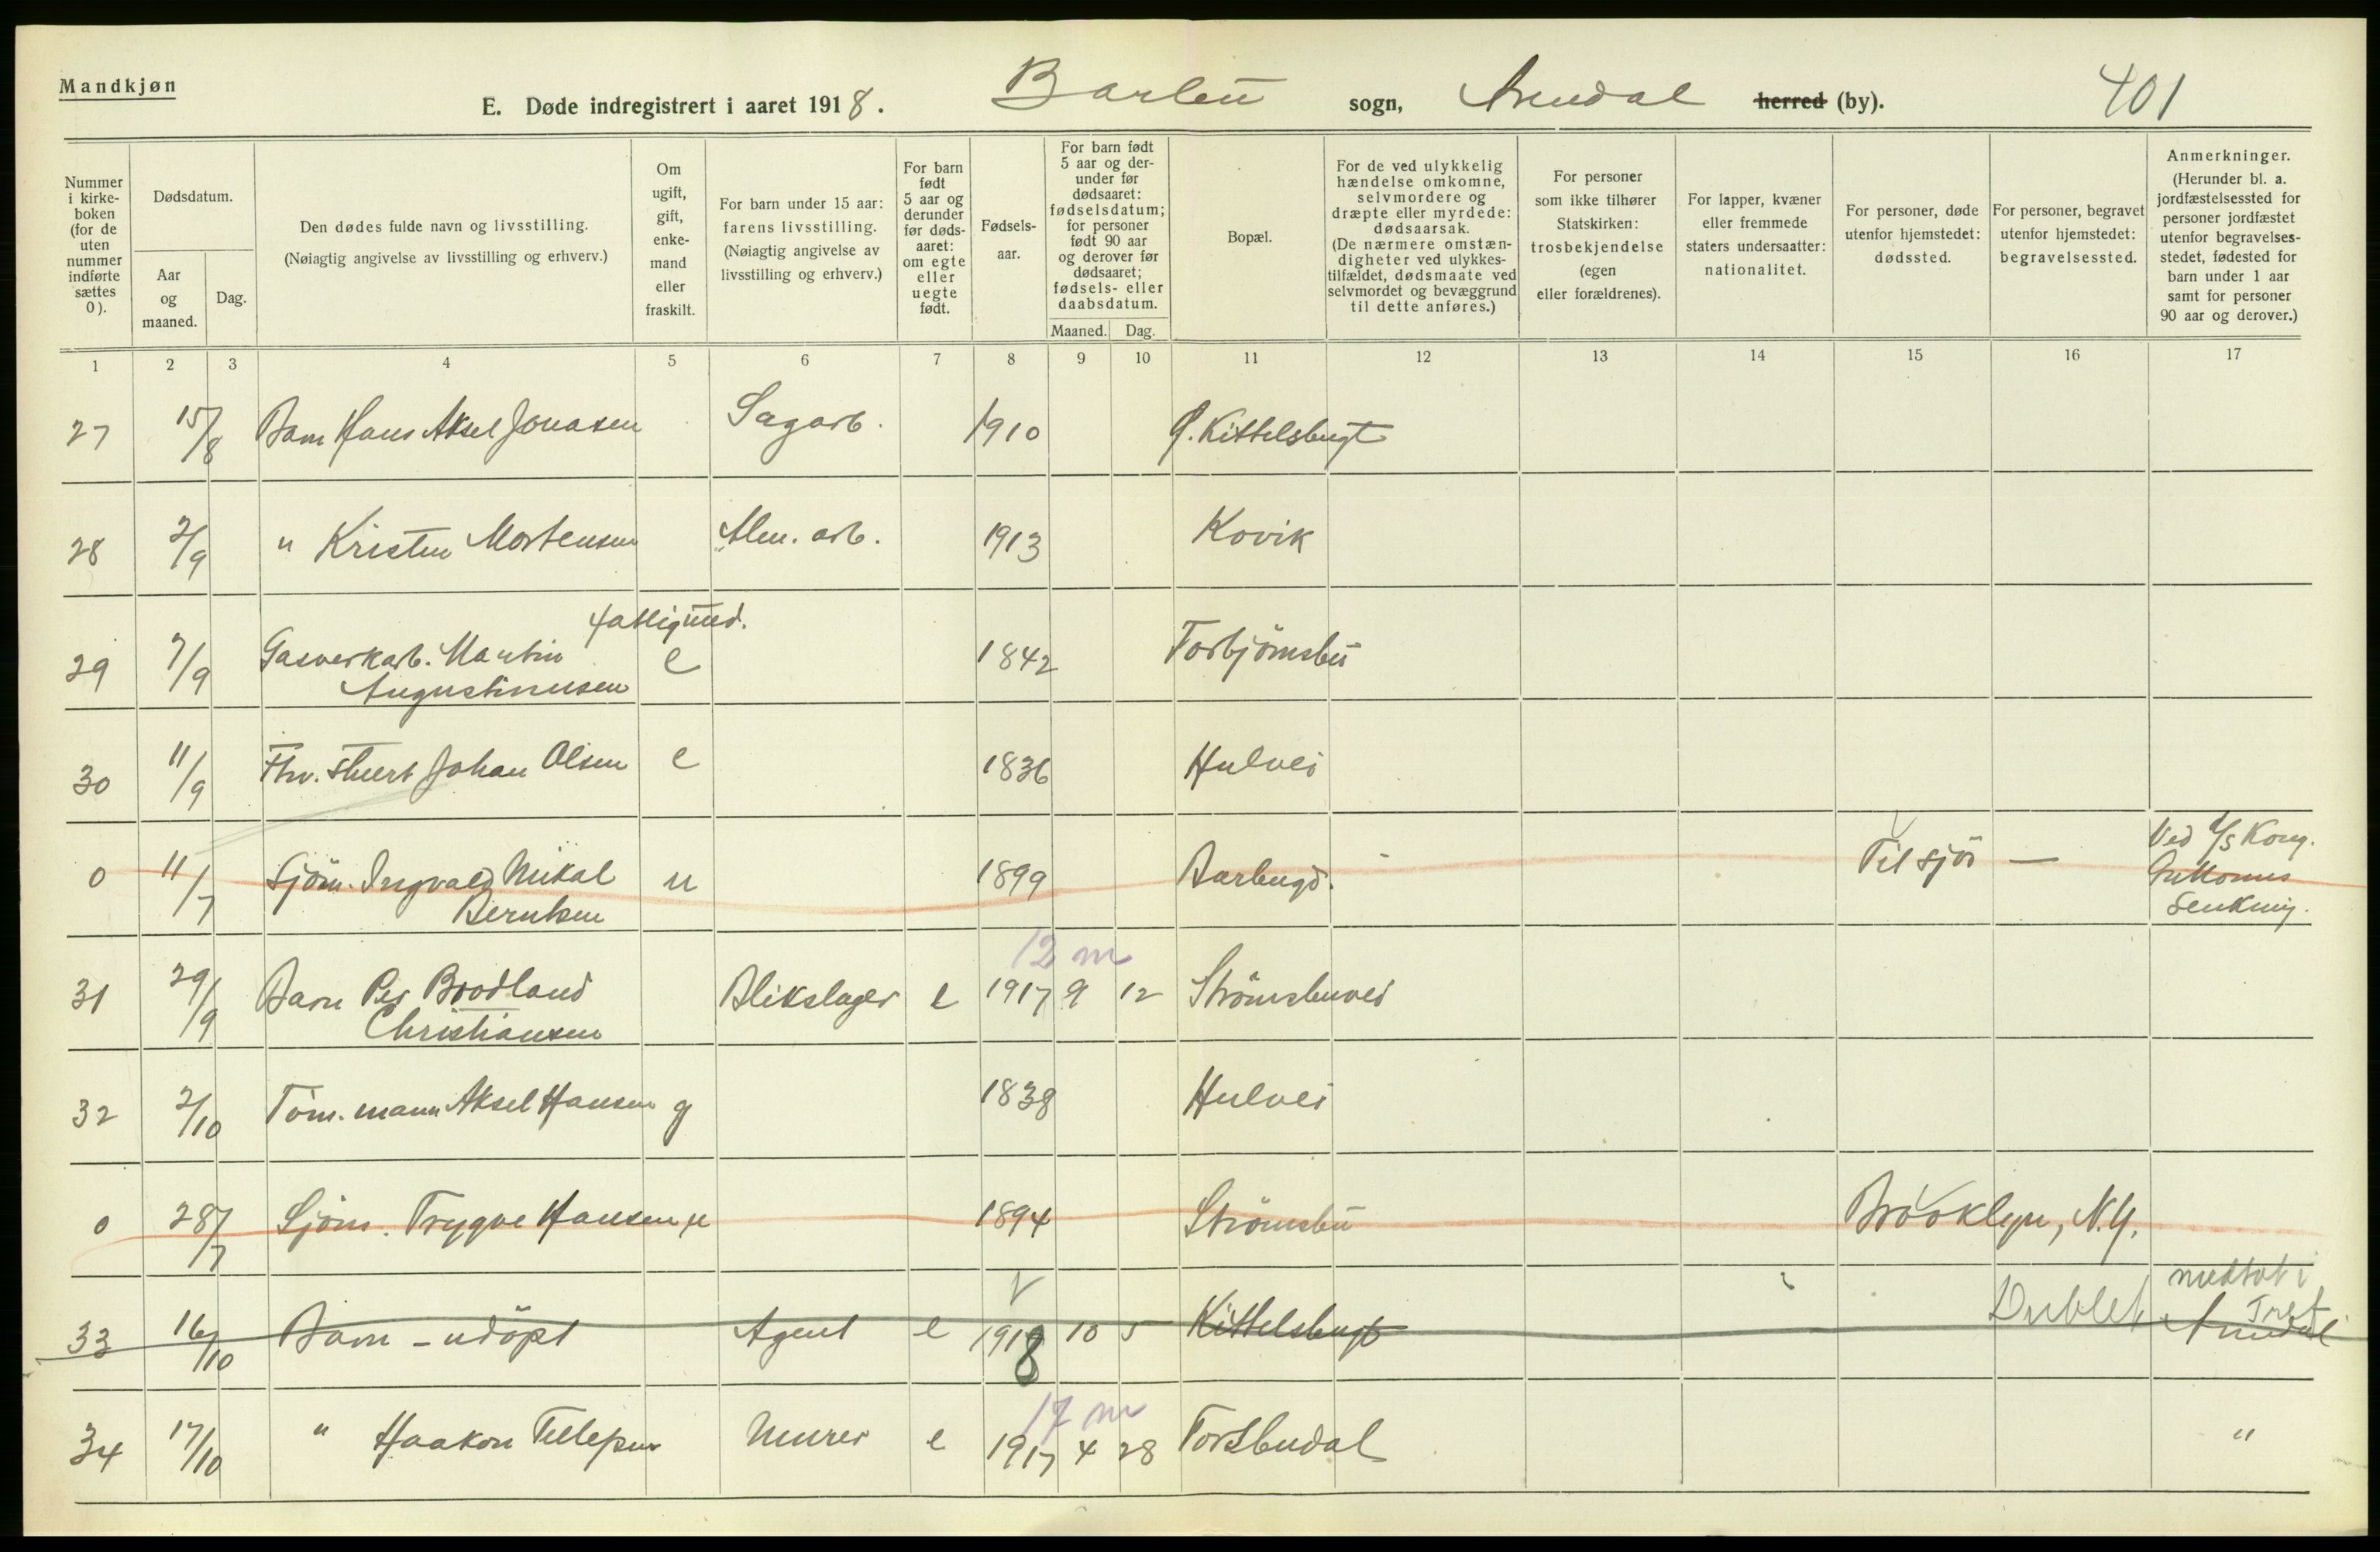 Mandkjøn
E. Døde indregistrert i aaret 1918. Barbu sogn, Arendal herred (by). 401
Nummer i kirkeboken (for de uten nummer indførte sættes 0).
Dødsdatum.
Aar og maaned.
Dag.
Den dødes fulde navn og livsstilling.
(Nøiagtig angivelse av livsstilling og erhverv.)
Om ugift, gift, enkemand eller fraskilt.
For barn under 15 aar: farens livsstilling.
(Nøiagtig angivelse av livsstilling og erhverv.)
For barn født 5 aar og derunder før dødsaaret: om egte eller uegte født.
Fødselsaar.
For barn født 5 aar og derunder før dødsaaret: fødselsdatum; for personer født 90 aar og derover før dødsaaret; fødsels- eller daabsdatum.
Maaned. Dag.
Bopæl.
For de ved ulykkelig hændelse omkomne, selvmordere og dræpte eller myrdede: dødsaarsak. (De nærmere omstændigheter ved ulykkestilfældet, dødsmaate ved selvmordet og bevæggrund til dette anføres.)
For personer som ikke tilhører Statskirken: trosbekjendelse (egen eller forældrenes).
For lapper, kvæner eller fremmede staters undersaatter: nationalitet.
For personer, døde utenfor hjemstedet: dødssted.
For personer, begravet utenfor hjemstedet: begravelsessted.
Anmerkninger. (Herunder bl. a. jordfæstelsessted for personer jordfæstet utenfor begravelsesstedet, fødested for barn under 1 aar samt for personer 90 aar og derover.)
1 2 3 4 5 6 7 8 9 10 11 12 13 14 15 16 17
27 15/8 Barn Hans Aksel Jonasen Sagarb. 1910 G. Kittelsbugt
28 2/9 " Kristen Mortensen Alm. arb. 1913 Kovik
fattigund.
29 7/9 Gasverkarb. Martin e 1842 Torbjörnsbu
Augustinusen
30 11/9 Fhv. Stuert Johan Olsen e 1836 Hulvei
0 11/7 Sjöm. Ingvald Mikal u 1899 Barbugd. Til sjös — Ved S/S Kong
Berntsen Guttorms
senkning.
12 m
31 29/9 Barn Per Brodland Blikslager e 1917 9 12 Strömsbuvei
Christiansen
32 2/10 Töm.mann Aksel Hansen g 1838 Hulvei
0 28/7 Sjöm. Trygve Hansen u 1894 Strömsbu Brooklyn, N.Y.
medtat i
33 16/10 Barn - udöpt Agent e 1918 10 5 Kittelsbugt Dublet Tref.
Arendal
17 m
34 17/10 " Haakon Tellefsen Murer e 1917 4 28 Torsbudal "